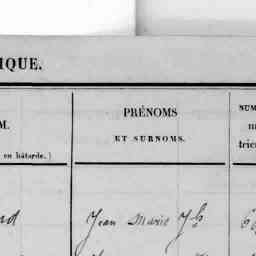 IQUE.
M.
en bâtarde.)
PRÉNOMS
ET SURNOMS.
NUM
tric
Jean Marie Jh